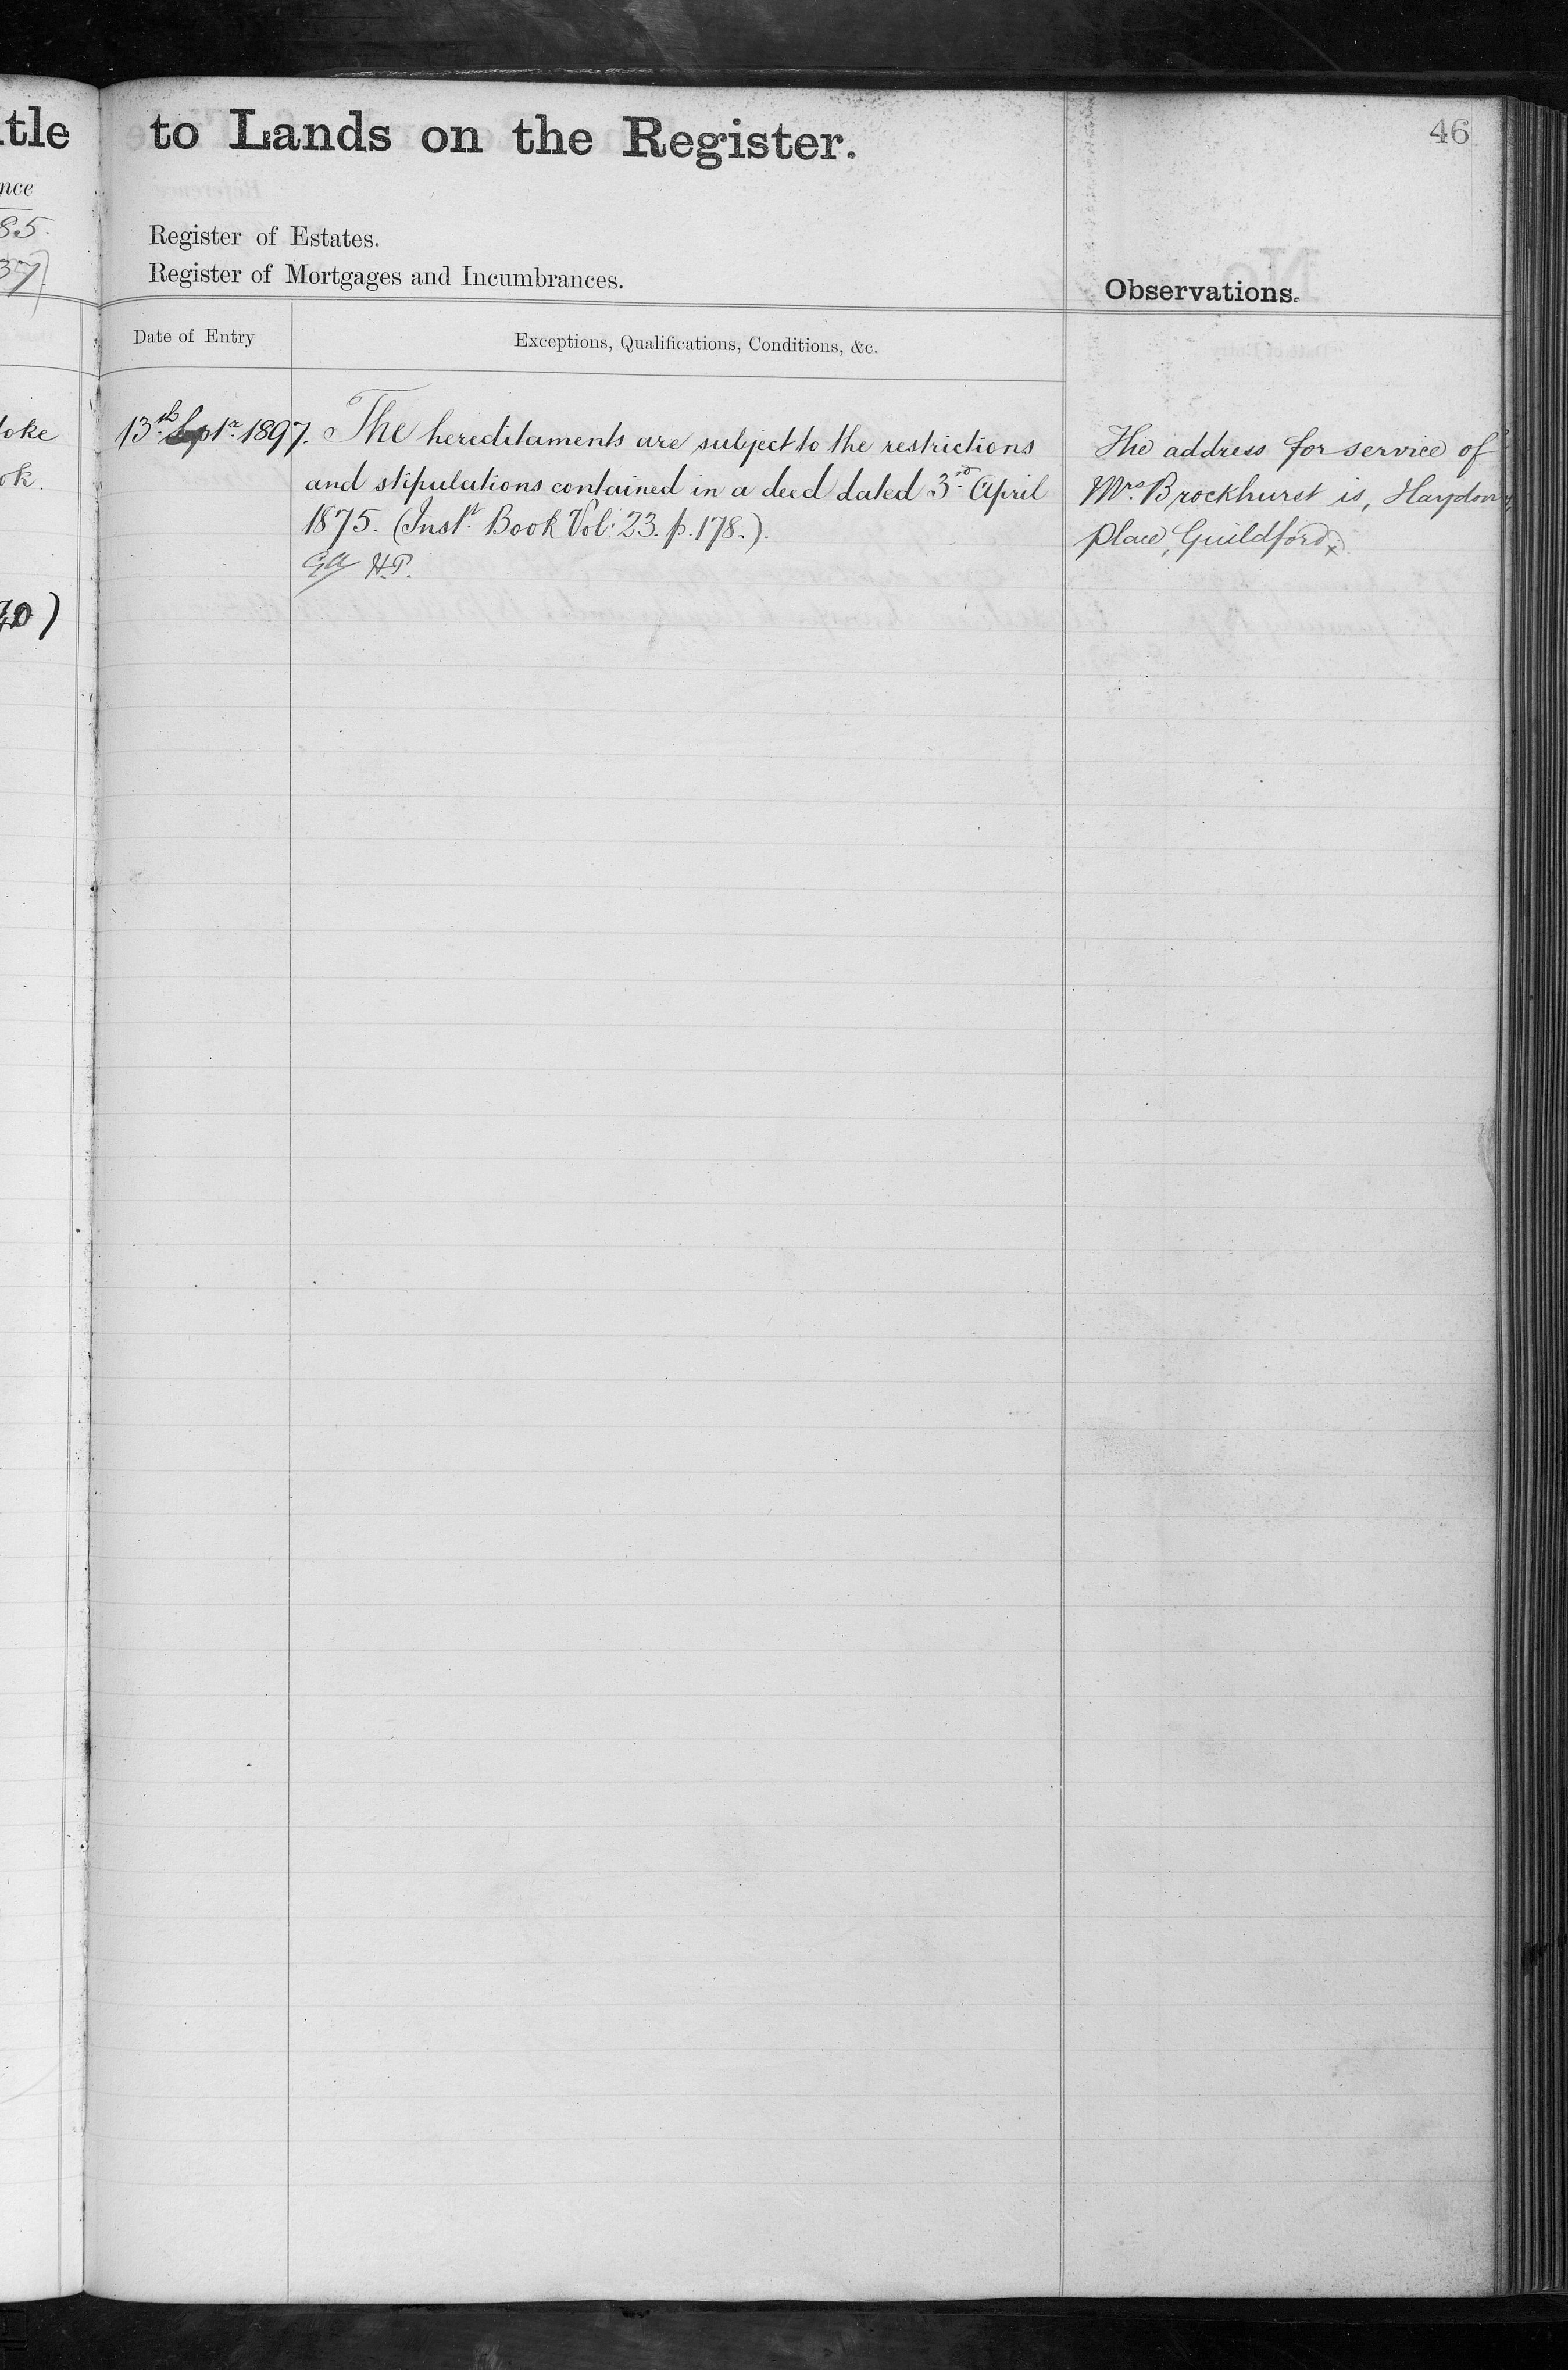 to Lands on the Register.
46
Register of Estates.
Register of Mortgages and Incumbrances.
Observations.
Date of Entry
Exceptions, Qualifications, Conditions, &c.
13th Septr. 1897.
The hereditaments are subject to the restrictions
and stipulations contained in a deed dated 3rd April
1875. (Inst. Book Vol: 23. p. 178.).
H.P.
The address for service of
Mrs. Brockhurst is, Haydon
Place, Guildford.